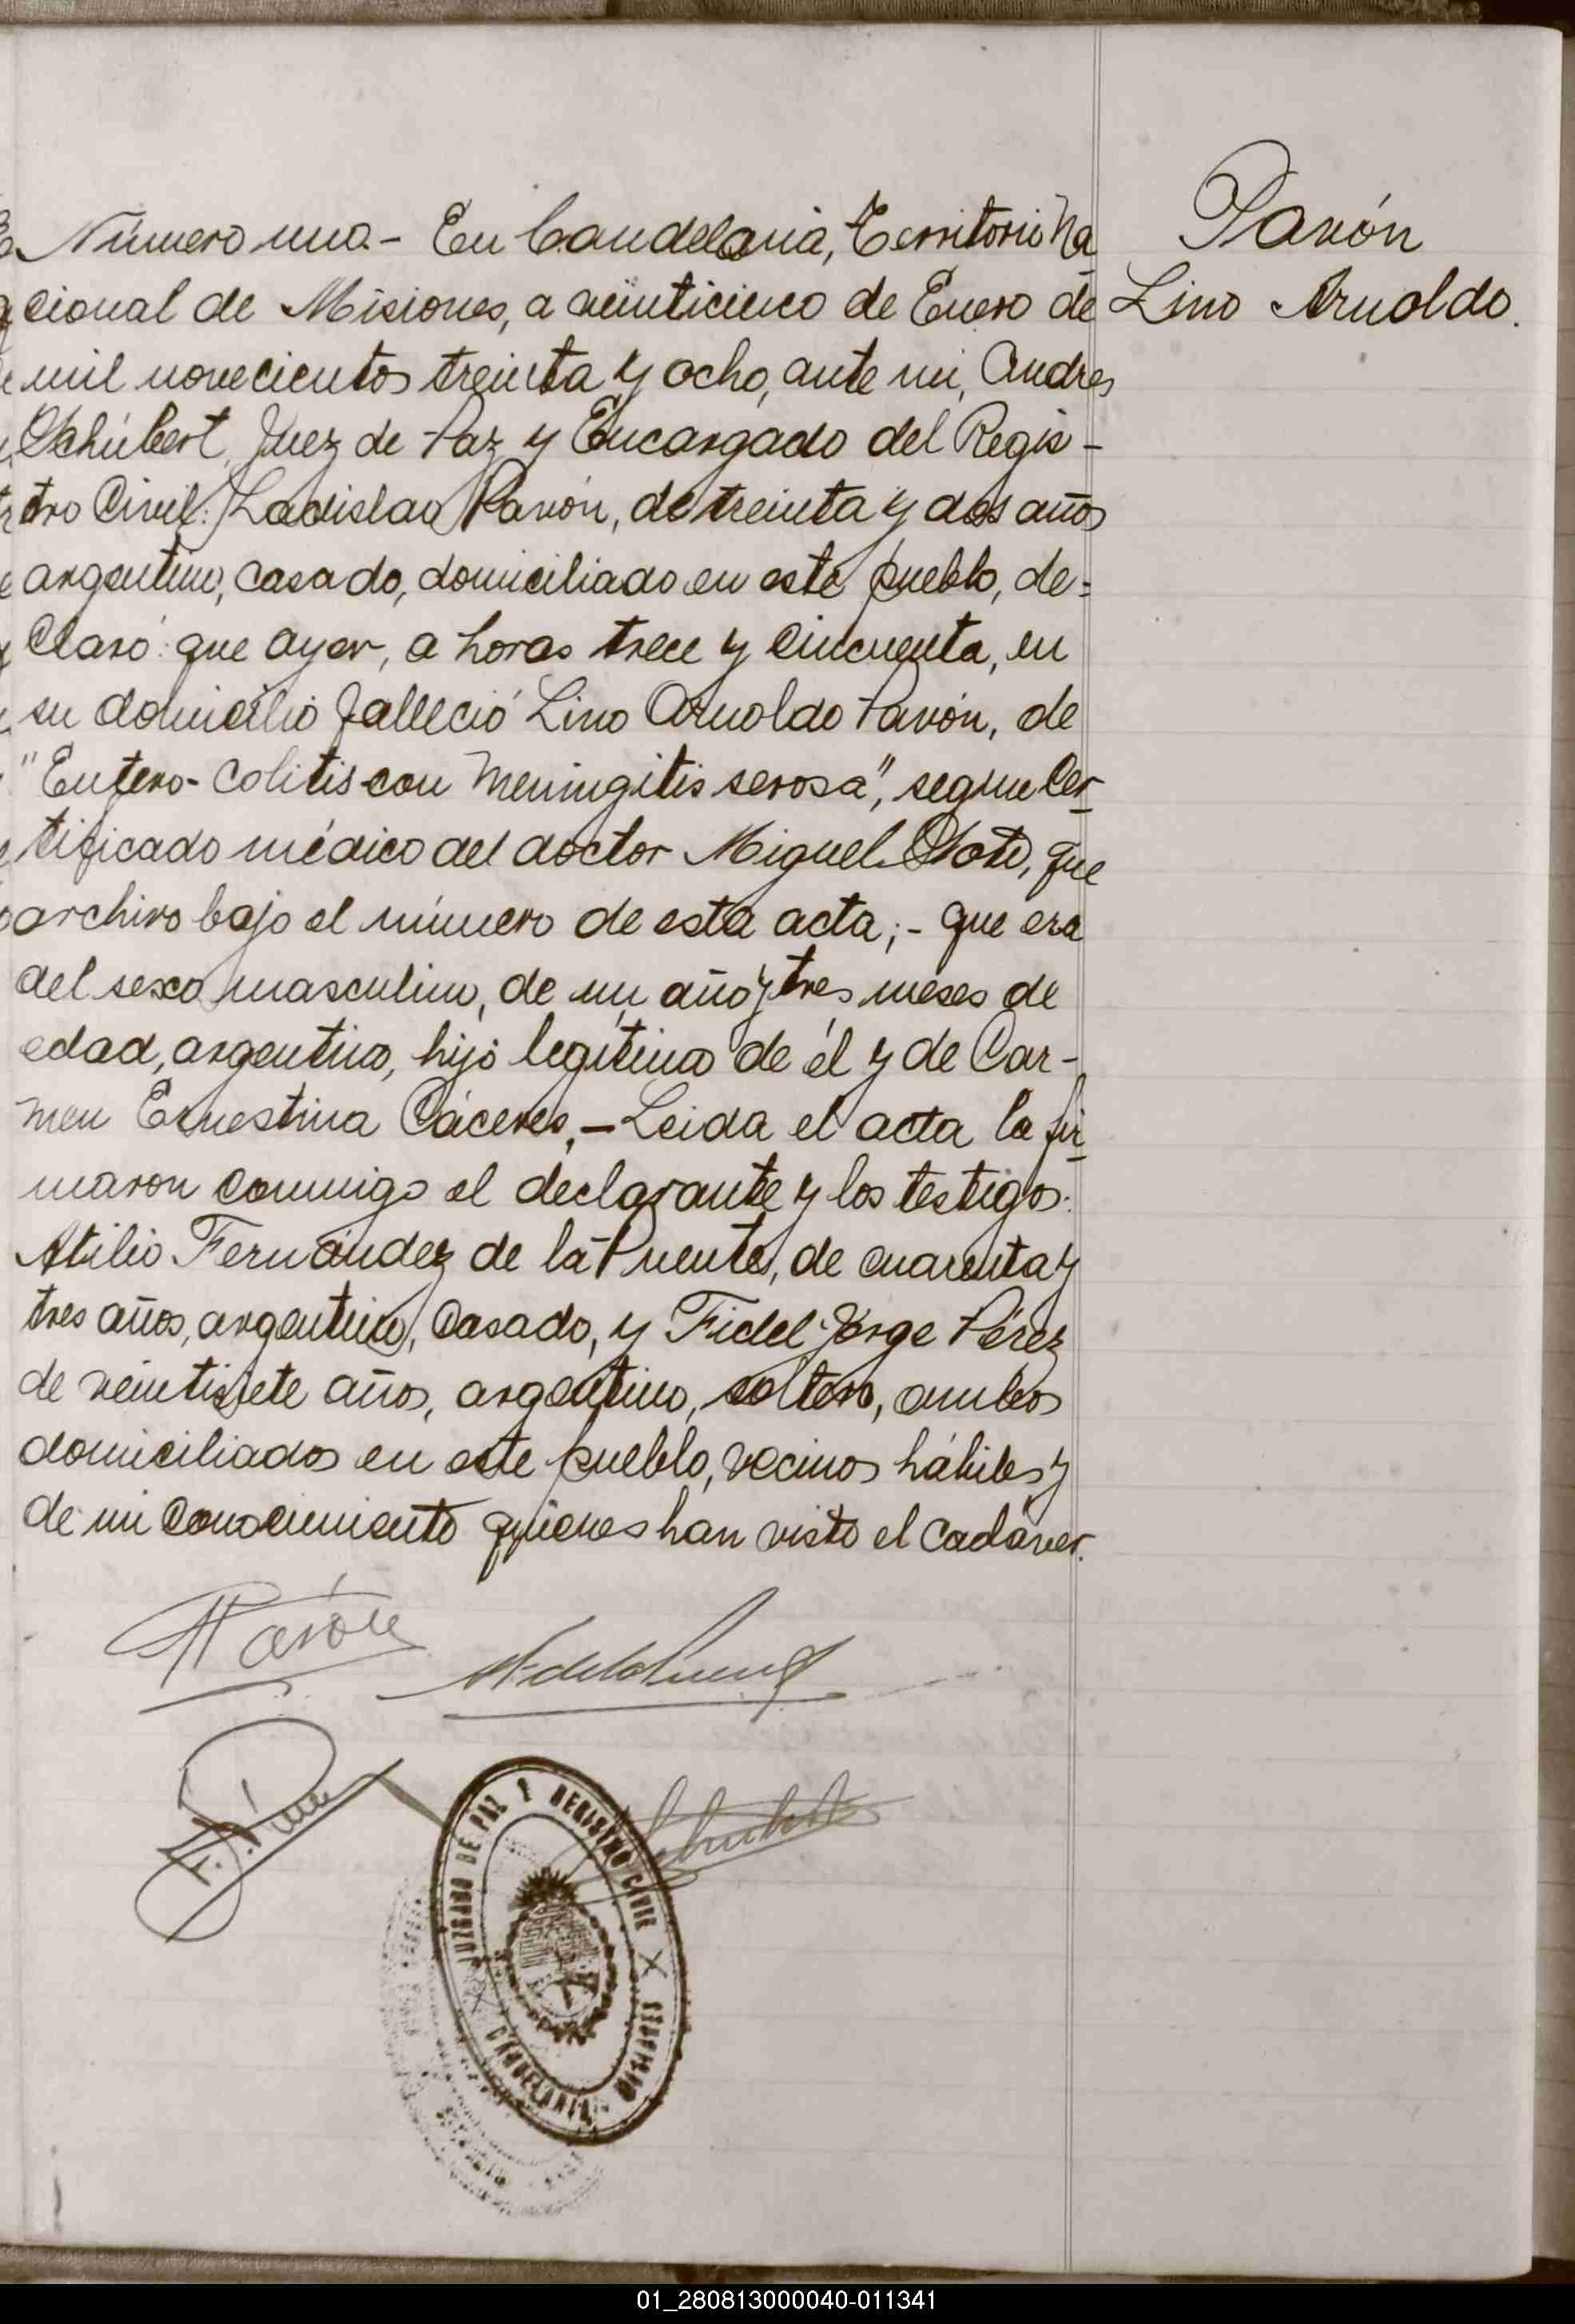 Número uno.- En Candelaria, Territorio Na
cional de Misiones, a veinticinco de Enero de
mil novecientos treinta y ocho, ante mi, Andres
Schúbert, Juez de Paz y Encargado del Regis-
tro Civil: Ladislao Pavón, de treinta y dos años
argentino, casado, domiciliado en este pueblo, de=
claró: que ayer, a horas trece y cincuenta, en
su domicilio falleció Lino Arnoldo Pavón, de
"Entero-colitis con meningitis serosa", segun cer
tificado médico del doctor Miguel que
archivo bajo el número de esta acta;- que era
del sexo masculino, de un año y tres meses de
edad, argentino, hijo legitimo de él y de Car-
men Ernestina Cáceres,- Leida el acta la fir
maron conmigo el declarante y los testigos:
Atilio Fernández de la Puente, de cuarenta y
tres años, argentino, casado, y Fidel Jorge Pérez
de veintisiete años, argentino, soltero, ambos
domiciliados en este pueblo, vecinos hábiles y
de mi conocimiento quienes han visto el cadáver.
Pavón
Lino Arnoldo.
Pavón
JUZGADO DE PAZ Y REGISTRO CIVIL
CANDELARIA
01_280813000040-011341